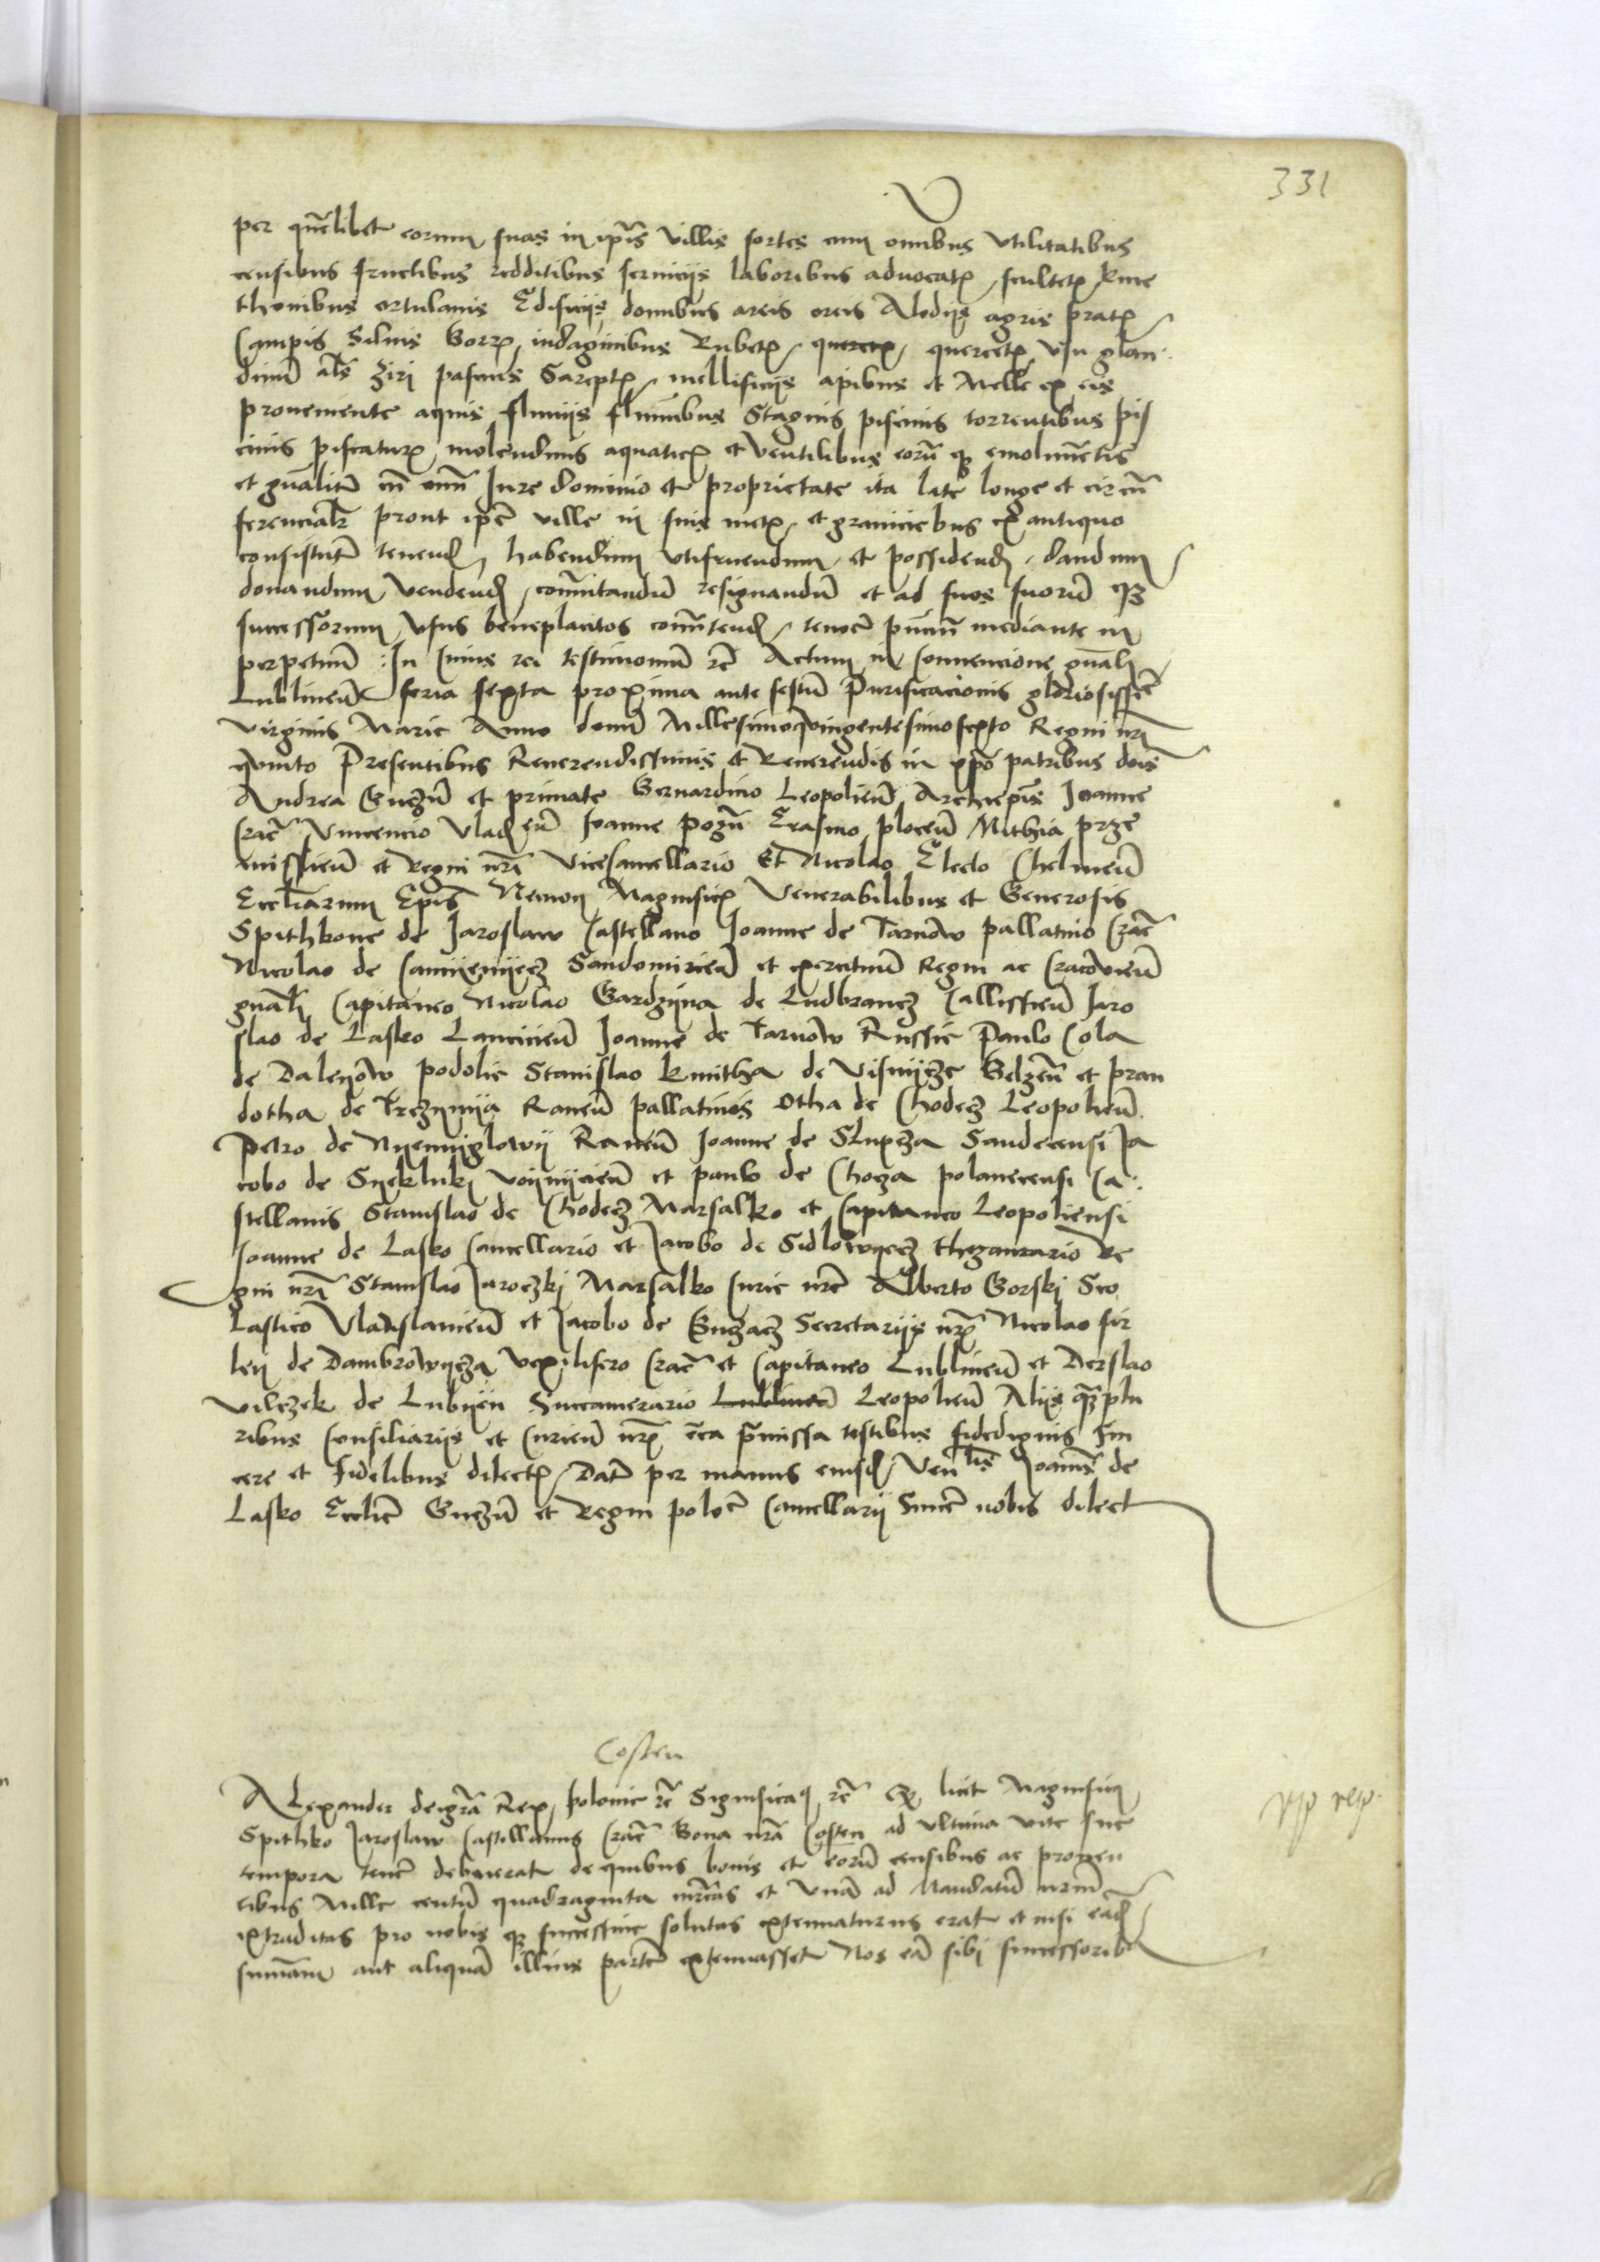 331
per qm̄libet eorum suas in ip̄is villis sortes cum om̄ibus vtilitatibus
censibus fructibus redditibus seruicijs laboribus aduocatꝭ scultetꝭ kme
thonibus ortulanis Edificijs domibus areis orreis Alodijs agris pratꝭ
Campis Siluis Borrꝭ indaginibus Rubetꝭ quercetꝭ vsu glan
dinū al̄s ziri pascuis Gareptꝭ mellificijs apibus et Melle ex eis
proueniente aquis fluuijs flūinibus Stagnis piscinis torrentibus pis
cinis piscaturꝭ molendinis aquaticꝭ et ventilibus eorū qꝫ emolumētis
et gn̄alitꝰ cū om̄i Jure dominio et proprietate ita late longe et circū
ferencialr̄ prout ip̄e ville in suis metꝭ et graniciebus ex antiquo
consistūt tenendꝭ habendum vtifruendum et possidendꝭ dandum
donandum vendendꝭ com̄utandū resignandū et ad suos suorū qꝫ
successorum vsus beneplacitos conūtendꝭ tenorē pn̄ciū mediante in
perpetuū In Cuius rei testimoniū rc̄ Actum in Conuencione gn̄ali
Lublineñ feria sexta proxima ante festū Purificacionis gloriosissīe
virginis Marie Anno domī Millesimoqvingentesimosexto Regni nr̄i
qvinto Presentibus Reuerendissimis et Reuerendis in xp̄o patribus dn̄is
Andrea Gnezñ et primate Bernardino Leopolieñ Archiep̄is Joanne
Crac̄ Vincencio Vladꝭ eñ Joanne pozñ Erasmo ploceñ Mathia prze
misslieñ et Regni nr̄i viceCancellario Et Nicolao Electo Chelmeñ
Eccl̄iarum Ep̄is Necnon Magnificꝭ Venerabilibus et Generosis
Spithkone de Jaroslaw Castellano Joanne de Tarnow pallatino Crac̄
Nicolao de Camijenijecz Sandomirieñ et exercituū Regni ac Cracovieñ
gn̄ali Capitaneo Nicolao Gardzijna de Ludbrancz Callissieñ Jaro
slao de Lasko Lancicieñ Joanne de Tarnow Russie Paulo Cola
de Daleyow podolie Stanislao kmitha de Visnijcze Belzeñ et pran
dotha de Trczijnija Raveñ pallatinis Otha de Chodecz Leopolieñ
Petro de Nyemijglowij Raveñ Joanne de Slupcza Sandecensi Ja
cobo de Syekluki voijnijcieñ et paulo de Chocza polanecensi Ca
stellanis Stanislao de Chodecz Marsalko et Capitaneo Leopoliensi
Joanne de Lasko Cancellario et Jacobo de Sidlowijecz thezaurario Re
gni nr̄i Stanislao Jaroczki Marsalko Curie nr̄e Alberto Gorski Sco
lastico Vladislauieñ et Jacobo de Buczacz Secretarijs nr̄is Nicolao fir
leij de Dambrowijcza Vexillifero Crac̄ et Capitaneo Lublineñ et Derslao
vilczek de Lubijen Succamerario Lublineñ Leopolieñ Alijs qꝫ plu
ribus Consiliarijs et Curieñ nr̄is circa p̄missa testibus fidedignis Sin
cere et fidelibus dilectꝭ Datꝭ per manus eiusdꝭ Ven lis Joannis de
Lasko Eccl̄ie Gnezñ et Regni poloē Cancellarij Sincē nobis dilect
Costen
Alexander dei gr̄a Rex polonie rc̄ Significaꝰ rc̄ Qꝫ licet Magnificꝰ
Spithko Jaroslaw Castellanus Crac̄ Bona nr̄a Costen ad vltima vite sue
tempora tenē debuerat de quibus bonis et eorū censibus ac prouen
tibus Mille centū quadraginta mr̄cas et vnā ad Mandatū nrm̄
extraditas pro nobis qꝫ successiue solutas extenuaturus erat et nisi eadꝭ
sum̄am aut aliquā illius partē extenuasset Nos eā sibi successoribꝰ